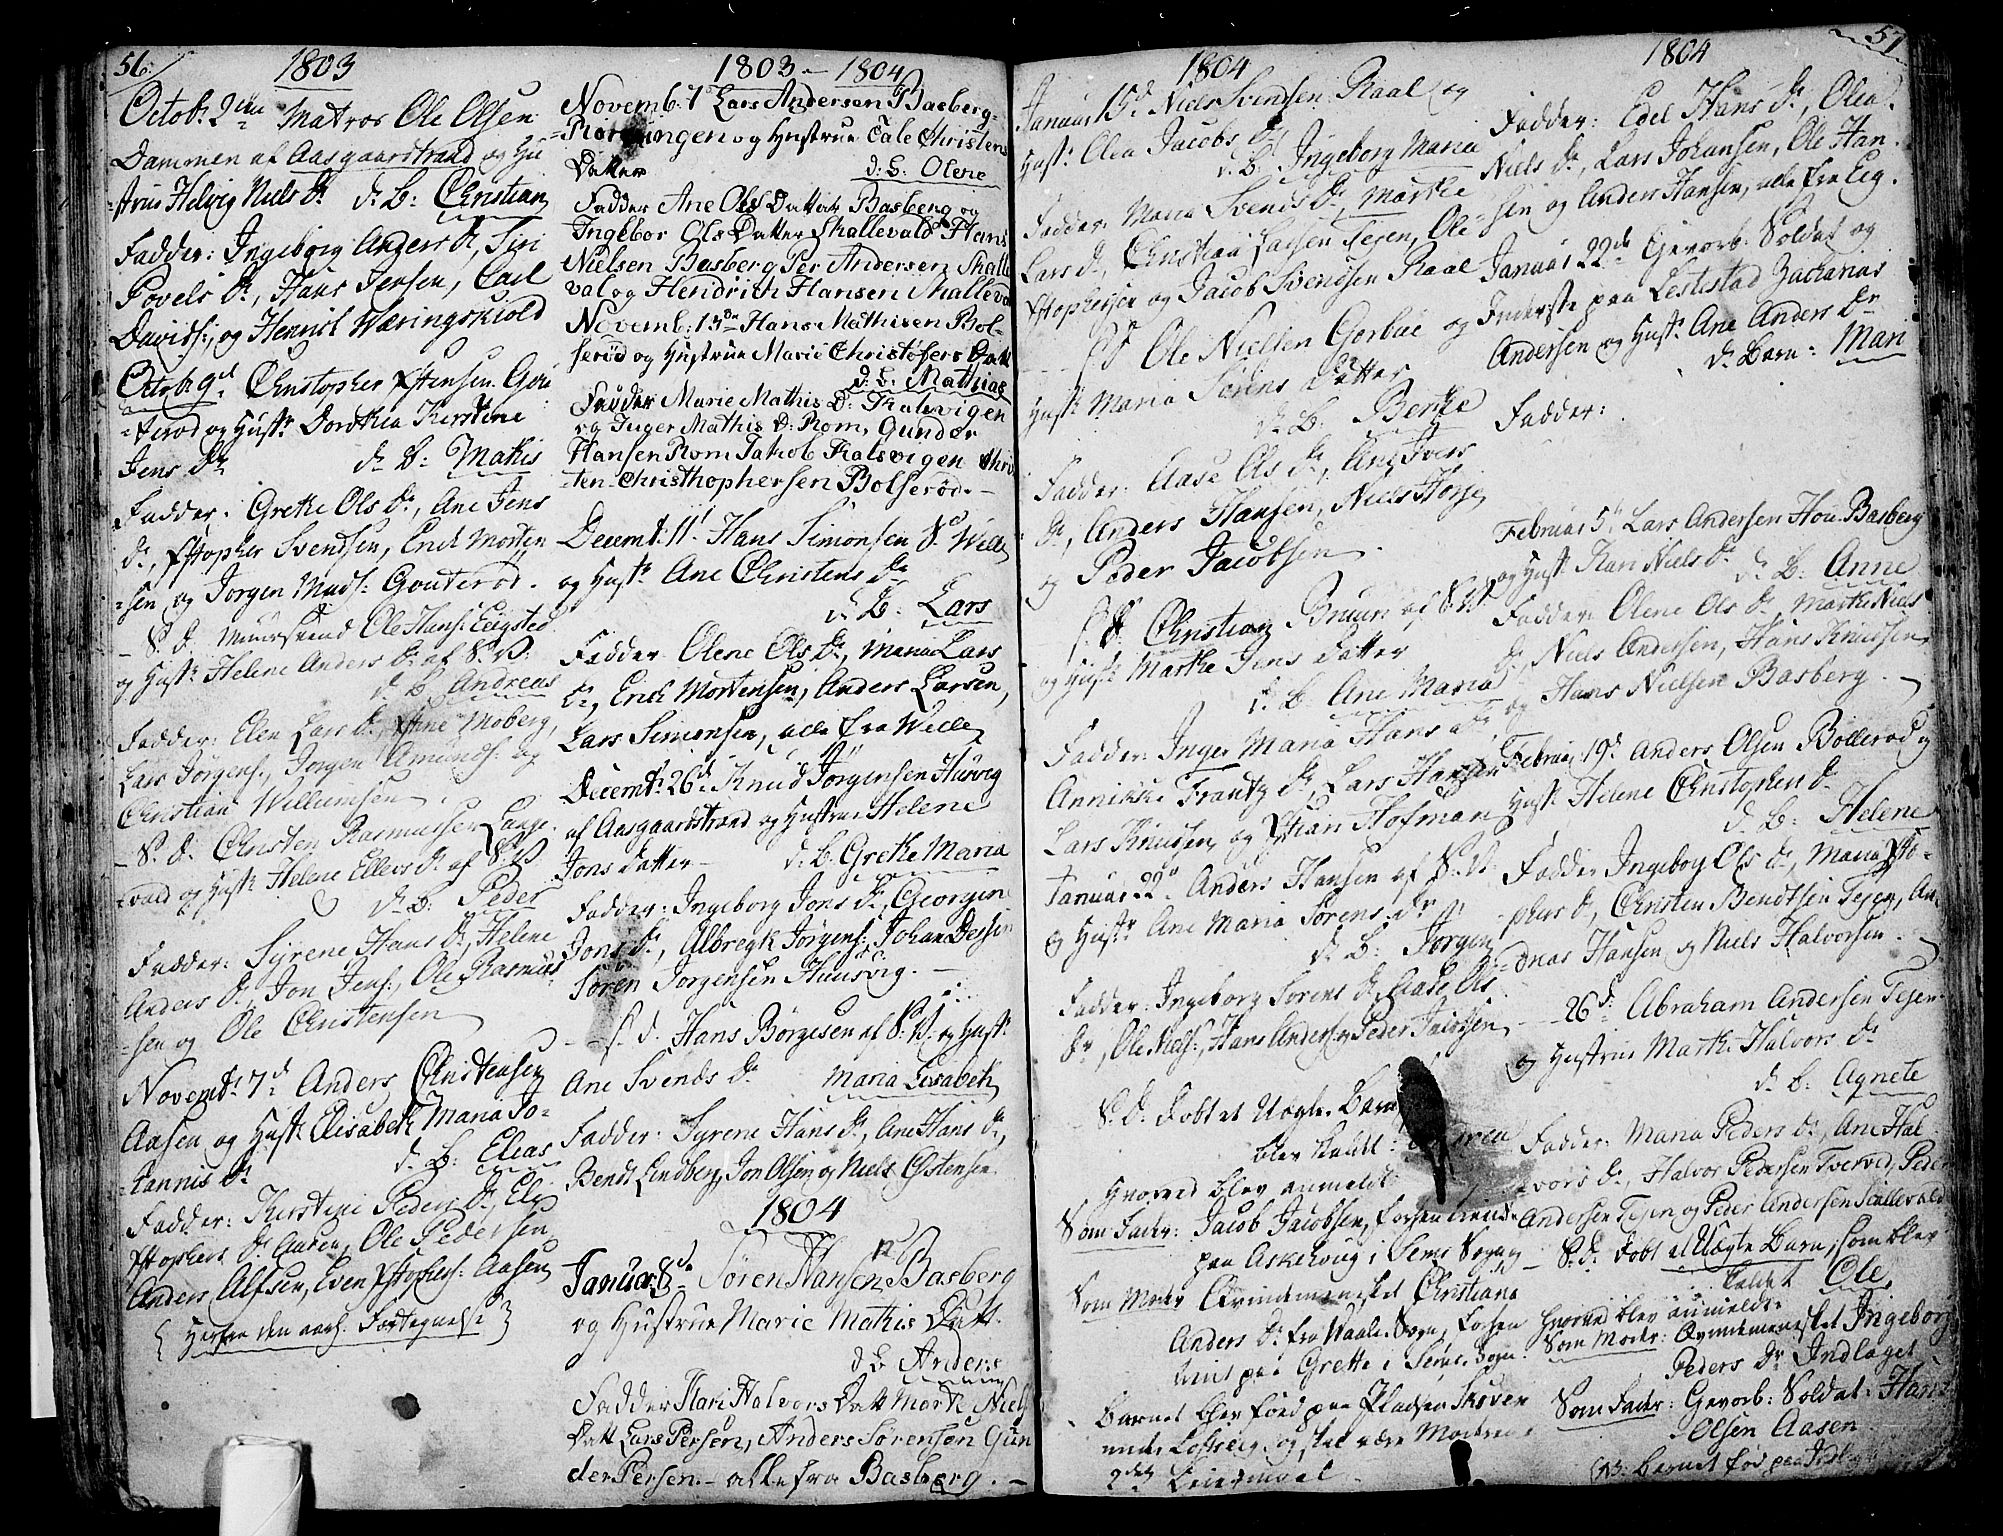 56.
1803
Octob: 2den Matros Ole Olsen
Dammen af Aasgaardstrand og Hu
=strue Helvig Niels Dr. d: B: Christian
Fadder: Ingeborg Anders Dr, Siri
Povels Dr, Hans Jensen, Carl
Davids:, og Henrich Wæringskiold
Octob: 9d Christopher Estensen Gou
=terød og Hustr Dorothea Kirstine
Jens Dr d. B: Mathis
Fadder: Grethe Ols Dr, Ane Jens
Dr, Xstopher Svendsen, Erich Morten
=sen og Jørgen Mads: Gouterød.
– S. D. Ole Hans: Eeigsted
og Hustr Helene Anders Dr af S: V:
d. B. Andreas
Fadder: Elen Lars Dr, Moberg,
Lars Jørgens:, Jørgen Amunds: og
Christian Willumsen
– S. D. Christen Rasmussen Lange
vald og Hustr Helene Ellevs Dr af S: V
d. B: Peder
Fadder: Syrene Hans Dr, Helene
Anders Dr, Jon Jens:, Ole Rasmus
=sen og Ole Christensen
Novemb: 7d Anders Christensen
Aasen og Hustr Elisabeth Maria Jo=
=hannis Dr d. B: Elias
Fadder: Kirstine Peders Dr, Ele
Xstophers Dr Aasen, Ole Pedersen,
Anders Alfsen, Even Xstophers: Aasen
{ Herfra den aarl. Fortegnelse }
1803 – 1804
Novemb: 7 Lars Andersen Basberg=
=Rørvingen og Hustrue Tale Christens
Datter d: B: Olene
Fadder Ane Ols Datter Basberg og
Ingebor Ols Datter Skallevald Hans
Nielsen Basberg Per Andersen Skalle
val og Hendrich Hansen Skalleval
Novemb: 13de Hans Mathisen Bol=
serød og Hustrue Marie Christofers Datt
d: B: Mathias
Fadder Marie Mathis D: Kalsvigen
og Inger Mathis D: Rom, Gunder
Hansen Rom Jakob Kalsvigen Chri
=ten Christhophersen Bolserød. –
Decemb: 11t Hans Simonsen S. Welle
og Hustr Ane Christens Dr
d. B: Lars
Fadder Olene Ols Dr, Maria Lars
Dr, Erich Mortensen, Anders Larsen,
Lars Simonsen, alle fra Welle
Decemb: 26d Knud Jørgensen Husvig
af Aasgaardstrand og Hustrue Helene
Jons Datter – d. B. Grethe Maria
Fadder: Ingeborg Jons Dr, Georgin
Jons Dr, Albregt Jørgens:, Johan Dessin
Søren Jørgensen Huusvig. –
– S. d. Hans Børgesen af S. V. og Hustr
Ane Svends Dr Maria Lisabeth
Fadder: Syrene Hans Dr, Ane Hans Dr,
Bendt Lindberg, Jon Olsen og Niels Estensen
1804
Januar 8de Søren Hansen Basberg
og Hustrue Marie Mathis Datt.
d B Anders
Fadder Kari Halvors Datt Marte Niels
Datt Lars Persen, Anders Sørensen Gun
der Persen – alle fra Basberg. –
1804
Januar 15d Niels Svendsen Raal og
Hustr Olea Jacobs Dr
d. B. Ingeborg Maria
Fadder: Maria Svends Dr, Marthe
Lars Dr, Christian Larsen Tejen, Ole
Xstophersen og Jacob Svendsen Raal
S d Ole Nielsen Gerboe og
Hustr Maria Sørens Datter
d. B. Berthe
Fadder: Aase Ols Dr, Ane Ivers
Dr, Anders Hansen, Niels
og Peder Jacobsen.
S d Christian Bruun af S: V:
og Hustr Marthe Jens Datter
d. B. Ane Maria
Fadder: Inger Maria Hans Dr
Annikke Frantz Dr, Lars Hansen
Lars Knudsen og Xstian Hofman
Januar 22d Anders Hansen af S: V:
og Hustr Ane Maria Sørens Dr
d. B: Jørgen
Fadder: Ingeborg Sørens Dr, Aase Ols
Dr, Ole Niels:, Hans Anders: og Peder Jacobsen
S. D. døbt et Uægte Barn
blev kaldt:
Hvorved blev anmeldt
Som Fader: Jacob Jacobsen, forhen tienende
paa Askehoug i Sems Sogn
Som Moder Qvindemennesket Christiana
Anders Dr fra Vaale Sogn, forhen
tient paa Grette i Sems Sogn
Barnet blev fød paa Pladsen Skoven
under Løfteeig, og skal være Moderens
2det Leiermaal
57
1804
Fadder: Edel Hans Dr, Olea
Niels Dr, Lars Johansen, Ole Han=
=sen og Anders Hansen, alle fra Eeg.
Januar 22de Gevorb: Soldat og
Inderste paa Lestestad Zacharias
Andersen og Hustr Ane Anders Dr
d. Barn: Mari
Fadder:
Februar 5te Lars Andersen Hou. Basberg
og Hustr Kari Niels Dr
d. B. Anne
Fadder: Olene Ols Dr, Marthe Niels
Dr, Niels Andersen, Hans Knudsen,
og Hans Nielsen Basberg.
Februar 19d Anders Olsen Bollerød og
Hustr Helene Christophers Dr
d. B: Helene
Fadder Ingeborg Ols Dr, Maria Xsto=
phers Dr, Christen Bendtsen Tejen, An=
=dreas Hansen og Niels Halvorsen.
– 26d Abraham Andersen Tejen
og Hustrue Marthe Halvors Dr
d. B: Agnete
Fadder: Maria Peders Dr, Ane Hal=
=vors Dr, Halvor Pedersen Tverved, Peder
Andersen Tejen og Peder Andersen Skallevald
– S. d. døbt et Uægte Barn, som blev
kaldet Ole,
Hvorved blev anmeldt
Som Moder: Qvindemennesket Ingeborg
Peders Dr Indlaget
Som Fader: Gevorb: Soldat Hans
Olsen Aasen
(NB: Barnet fød paa